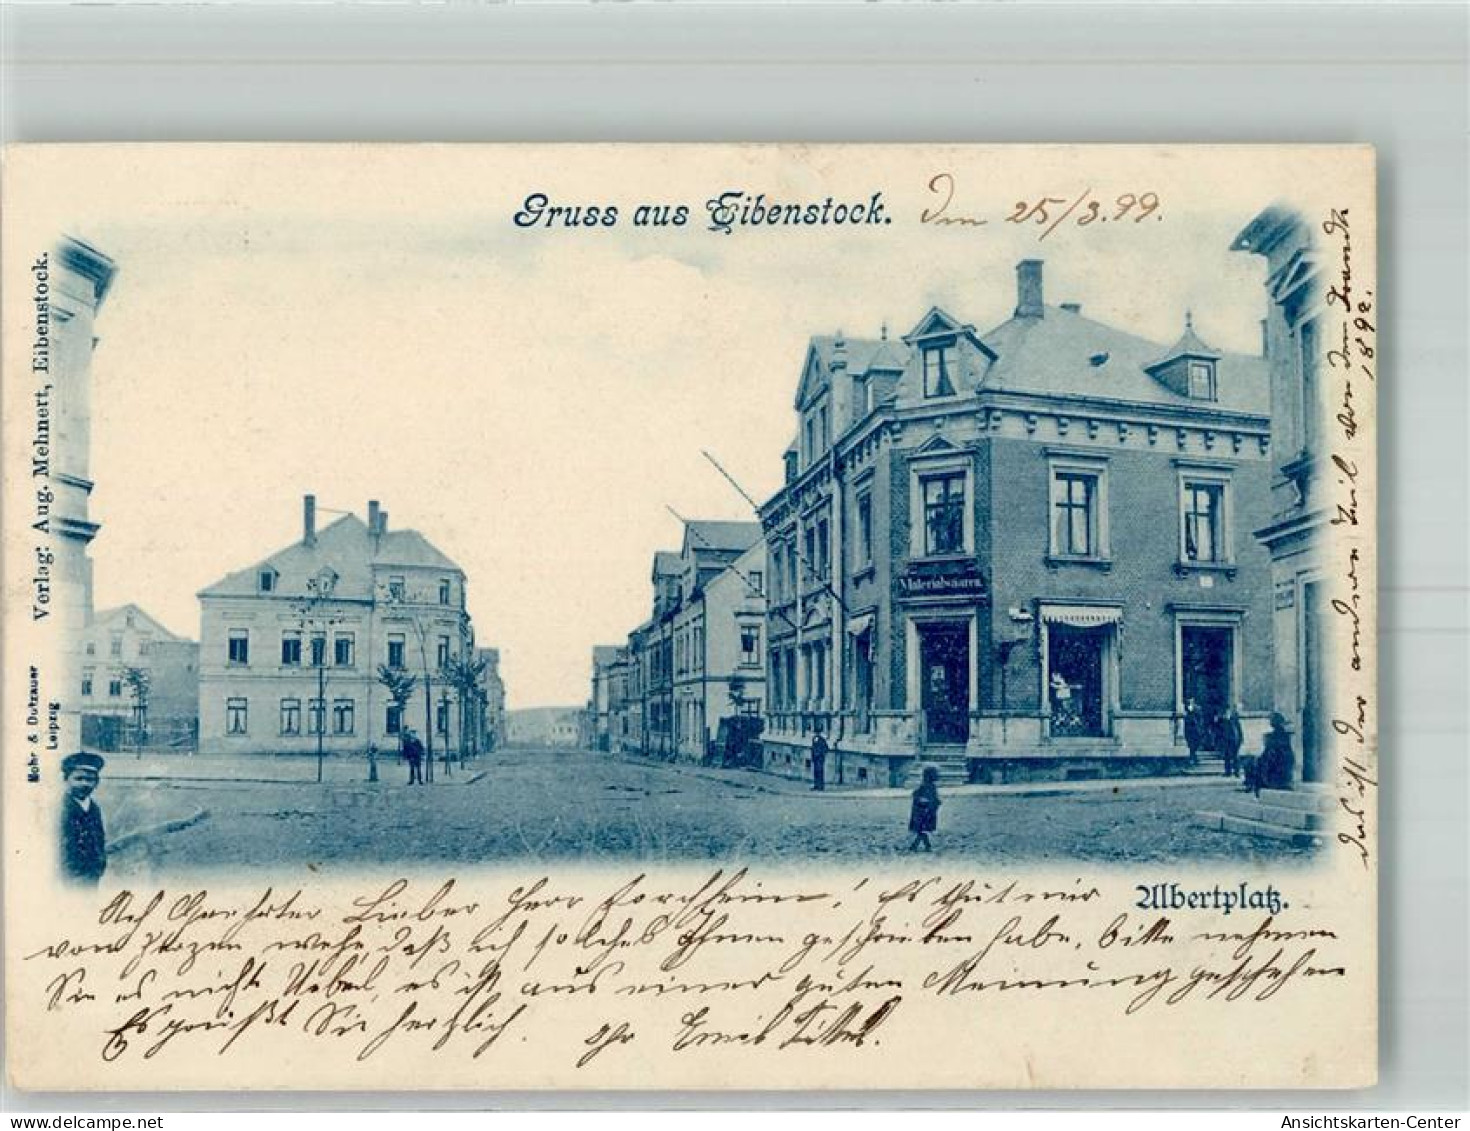 Gruss aus Eibenstock. Den 25/3.99.
Verlag: Aug. Mehnert, Eibenstock.
Mohr & Dutzauer
Leipzig
Materialwaaren.
Albertplatz.
Ach Geehrter Lieber Herr Forchheim! Es thut mir
von Herzen wehe, daß ich solches Ihnen geschrieben habe, bitte nehmen
Sie es nicht Uebel, es ist aus einer guten Meinung geschehen
Es grüßt Sie herzlich. Ihr Emil
das ist der andere Teil von dem
1892.
Ansichtskarten-Center